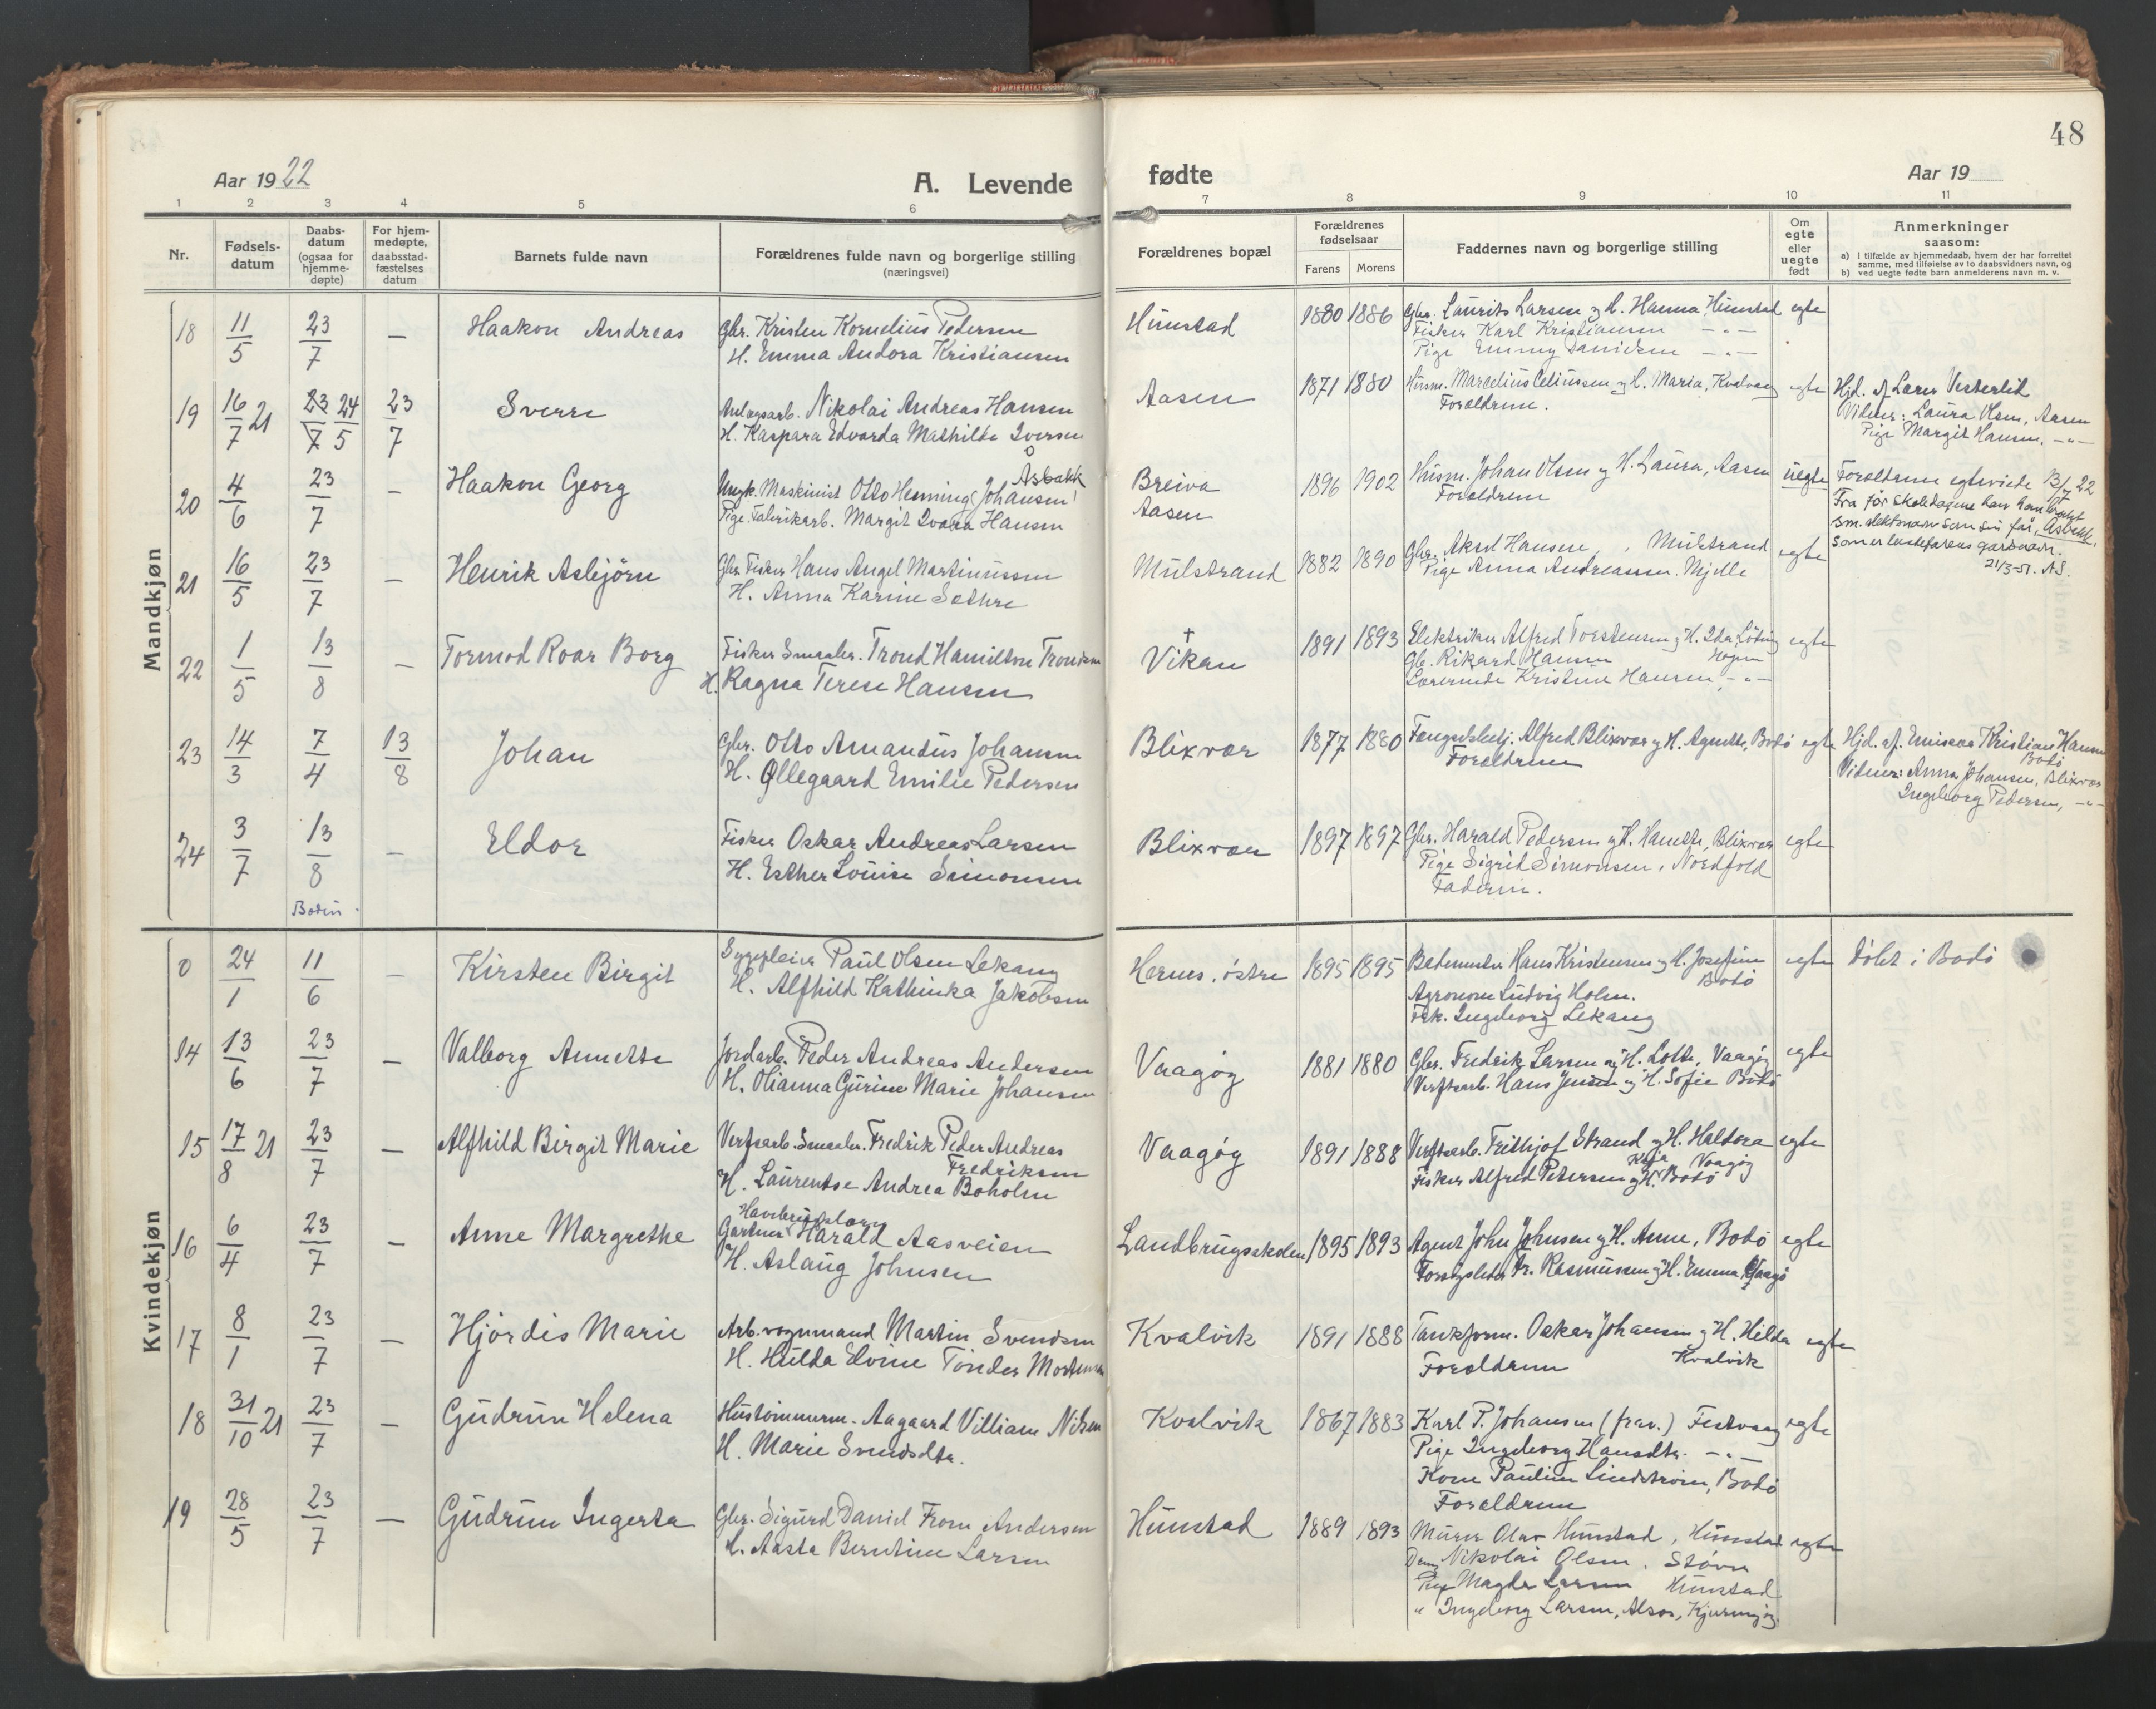 48
Aar 1922
A. Levende
fødte
Aar 19
1 2 3 4 5 6 7 8 9 10 11
Nr.
Fødsels-
datum
Daabs-
datum
(ogsaa for
hjemme-
døpte)
For hjem-
medøpte,
daabsstad-
fæstelses
datum
Barnets fulde navn
Forældrenes fulde navn og borgerlige stilling
(næringsvei)
Forældrenes bopæl
Forældrenes
fødselsaar
Farens Morens
Faddernes navn og borgerlige stilling
Om
egte
eller
uegte
født
Anmerkninger
saasom:
a) i tilfælde av hjemmedaab, hvem der har forrettet
samme, med tilføielse av to daabsvidners navn, og
b) ved uegte fødte barn anmelderens navn m. v.
Mandkjøn
18 11/5 23/7 — Haakon Andreas Gbr. Kristen Kornelius Pedersen Hunstad 1880 1886 Gbr. Laurits Larsen og H. Hanna, Hunstad egte
H. Emma Andora Kristiansen Fisker Karl Kristiansen —"—
Pige Emmy Danielsen —"—
19 16/7 21 23/7 24/5 23/7 Sverre Anlægsarb. Nikolai Andreas Hansen Aasen 1871 1880 Husm. Marcelius Celiussen og H. Maria, Kvalvaag egte Hjd. af Lærer Vesterlid
H. Kaspara Edvarda Mathilde Iversen Forældrene. Vidner: Laura Olsen, Aasen
Pige Margit Hansen, —"—
20 4/6 23/7 — Haakon Georg Ungk. Maskinist Otto Henning Johansen Åsbakk Breiva 1896 1902 Husm. Johan Olsen og H. Laura, Aasen uegte Forældrene egteviede 13/7 22
Pige. Fabrikarb. Margit Ivara Hansen Aasen Forældrene Fra før skoledagene har han valgt
sm. slektsnavn som sin far, Åsbakk,
som er bestefarens gårdsnavn.
21/3-51. AS.
21 16/5 23/7 — Henrik Asbjörn Gbr. Fisker Hans Angel Martinussen Mulstrand 1882 1890 Gbr. Aksel Hansen, Mulstrand egte
H. Anna Karine Sæthre Pige Anna Andreassen. Mjelle
22 1/5 13/8 — Tormod Roar Borg Fisker Smaabr. Trond Hamilton Trondsen † Vikan 1891 1893 Elektriker Alfred Torstensen og H. Ida, Löding egte
H. Ragna Terese Hansen Gb. Rikard Hansen Hopen
Lærerinde Kristine Hansen, —"—
23 14/3 7/4 13/8 Johan Gbr. Otto Amandus Johansen Blixvær 1877 1880 Fængselsbetj. Alfred Blixvær og H. Agnette, Bodö egte Hjd. af. Emissær Kristian Hansen
H. Øllegaard Emilie Pedersen Forældrene Bodö
Vidner: Anna Johansen, Blixvær
Ingeborg Pedersen, —"—
24 3/7 13/8 — Eldor Fisker Oskar Andreas Larsen Blixvær 1897 1897 Gbr. Harald Pedersen og H. Hanette, Blixvær egte
H. Esther Louise Simonsen Pige Sigrid Simonsen, Nordfold
Bodin. Faderen.
Kvindekjøn
0 24/1 11/6 — Kirsten Birgit Sygepleier Paul Olsen Lekang Hernes, östre 1895 1895 Bademester Hans Kristensen og H. Josefine egte Döbt i Bodö
H. Alfhild Kathinka Jakobsen Bodö
Agronom Ludvig Holm.
Frk. Ingeborg Lekang
14 13/6 23/7 — Valborg Annette Jordarb. Peder Andreas Andersen Vaagöy 1881 1880 Gbr. Fredrik Larsen og H. Lotte, Vaagöy egte
H. Olianna Gurine Marie Johansen Verftsarb. Hans Jensen og H. Sofie Bodö
15 17/8 21 23/7 — Alfhild Birgit Marie Verftsarb. Smaabr. Fredrik Peder Andreas Vaagöy 1891 1888 Verftsarb. Frithjof Strand og H. Haldora egte
Fredriksen Vaagöy
H. Laurentse Andrea Boholm Fisker Alfred Petersen og H. Kaja Bodö
16 6/4 23/7 — Anne Margrethe Gartner Havebrugslærer Harald Aasveien Landbrugsskolen 1895 1893 Agent John Johnsen og H. Anne, Bodö egte
H. Aslaug Johnsen Forsögsleder Fr. Rasmussen og H. Emma, Vaagö
17 8/1 23/7 — Hjördis Marie Arb. vognmand Martin Svendsen Kvalvik 1891 1888 Tankform. Oskar Johansen og H. Hilda egte
H. Hulda Elvine Tönder Mortensen Forældrene Kvalvik
18 31/10 21 23/7 — Gudrun Helena Hustömmerm. Aagaard Villiam Nilsen Kvalvik 1867 1883 Karl P. Johansen (frav.) Festvaag egte
H. Marie Svendsdtr. Pige Ingeborg Hansdtr. —"—
Kone Pauline Lindström, Bodö
Forældrene
19 28/5 23/7 — Gudrun Ingerta Gbr. Sigurd Daniel From Andersen Hunstad 1889 1893 Murer Olav Hunstad, Hunstad egte
H. Aasta Berntine Larsen Nikolai Olsen. Stövre
Pige Magda Larsen Hunstad
" Ingeborg Larsen, Alsos, Kjerringöy